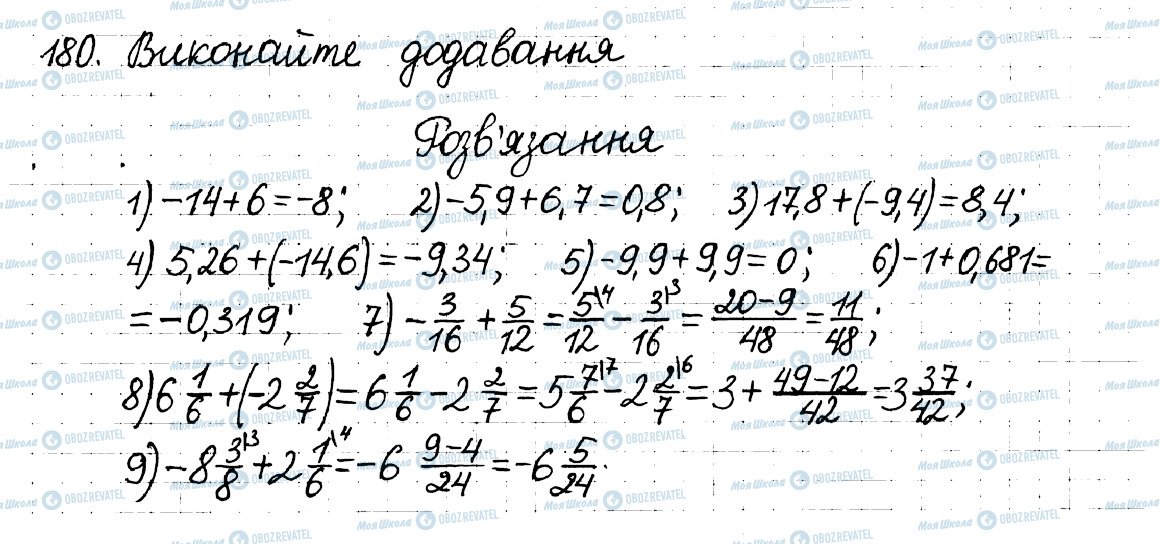 180. Виконайте додавання
Розв'язання
1) −14+6=−8; 2) −5,9+6,7=0,8; 3) 17,8+(−9,4)=8,4;
4) 5,26+(−14,6)=−9,34; 5) −9,9+9,9=0; 6) −1+0,681=
=−0,319; 7) −3/16 + 5/12 = 5\4/12 − 3\3/16 = 20−9/48 = 11/48;
8) 6 1/6 + (−2 2/7) = 6 1/6 − 2 2/7 = 5 7\7/6 − 2 2\6/7 = 3 + 49−12/42 = 3 37/42;
9) −8 3\3/8 + 2 1\4/6 = −6 9−4/24 = −6 5/24.